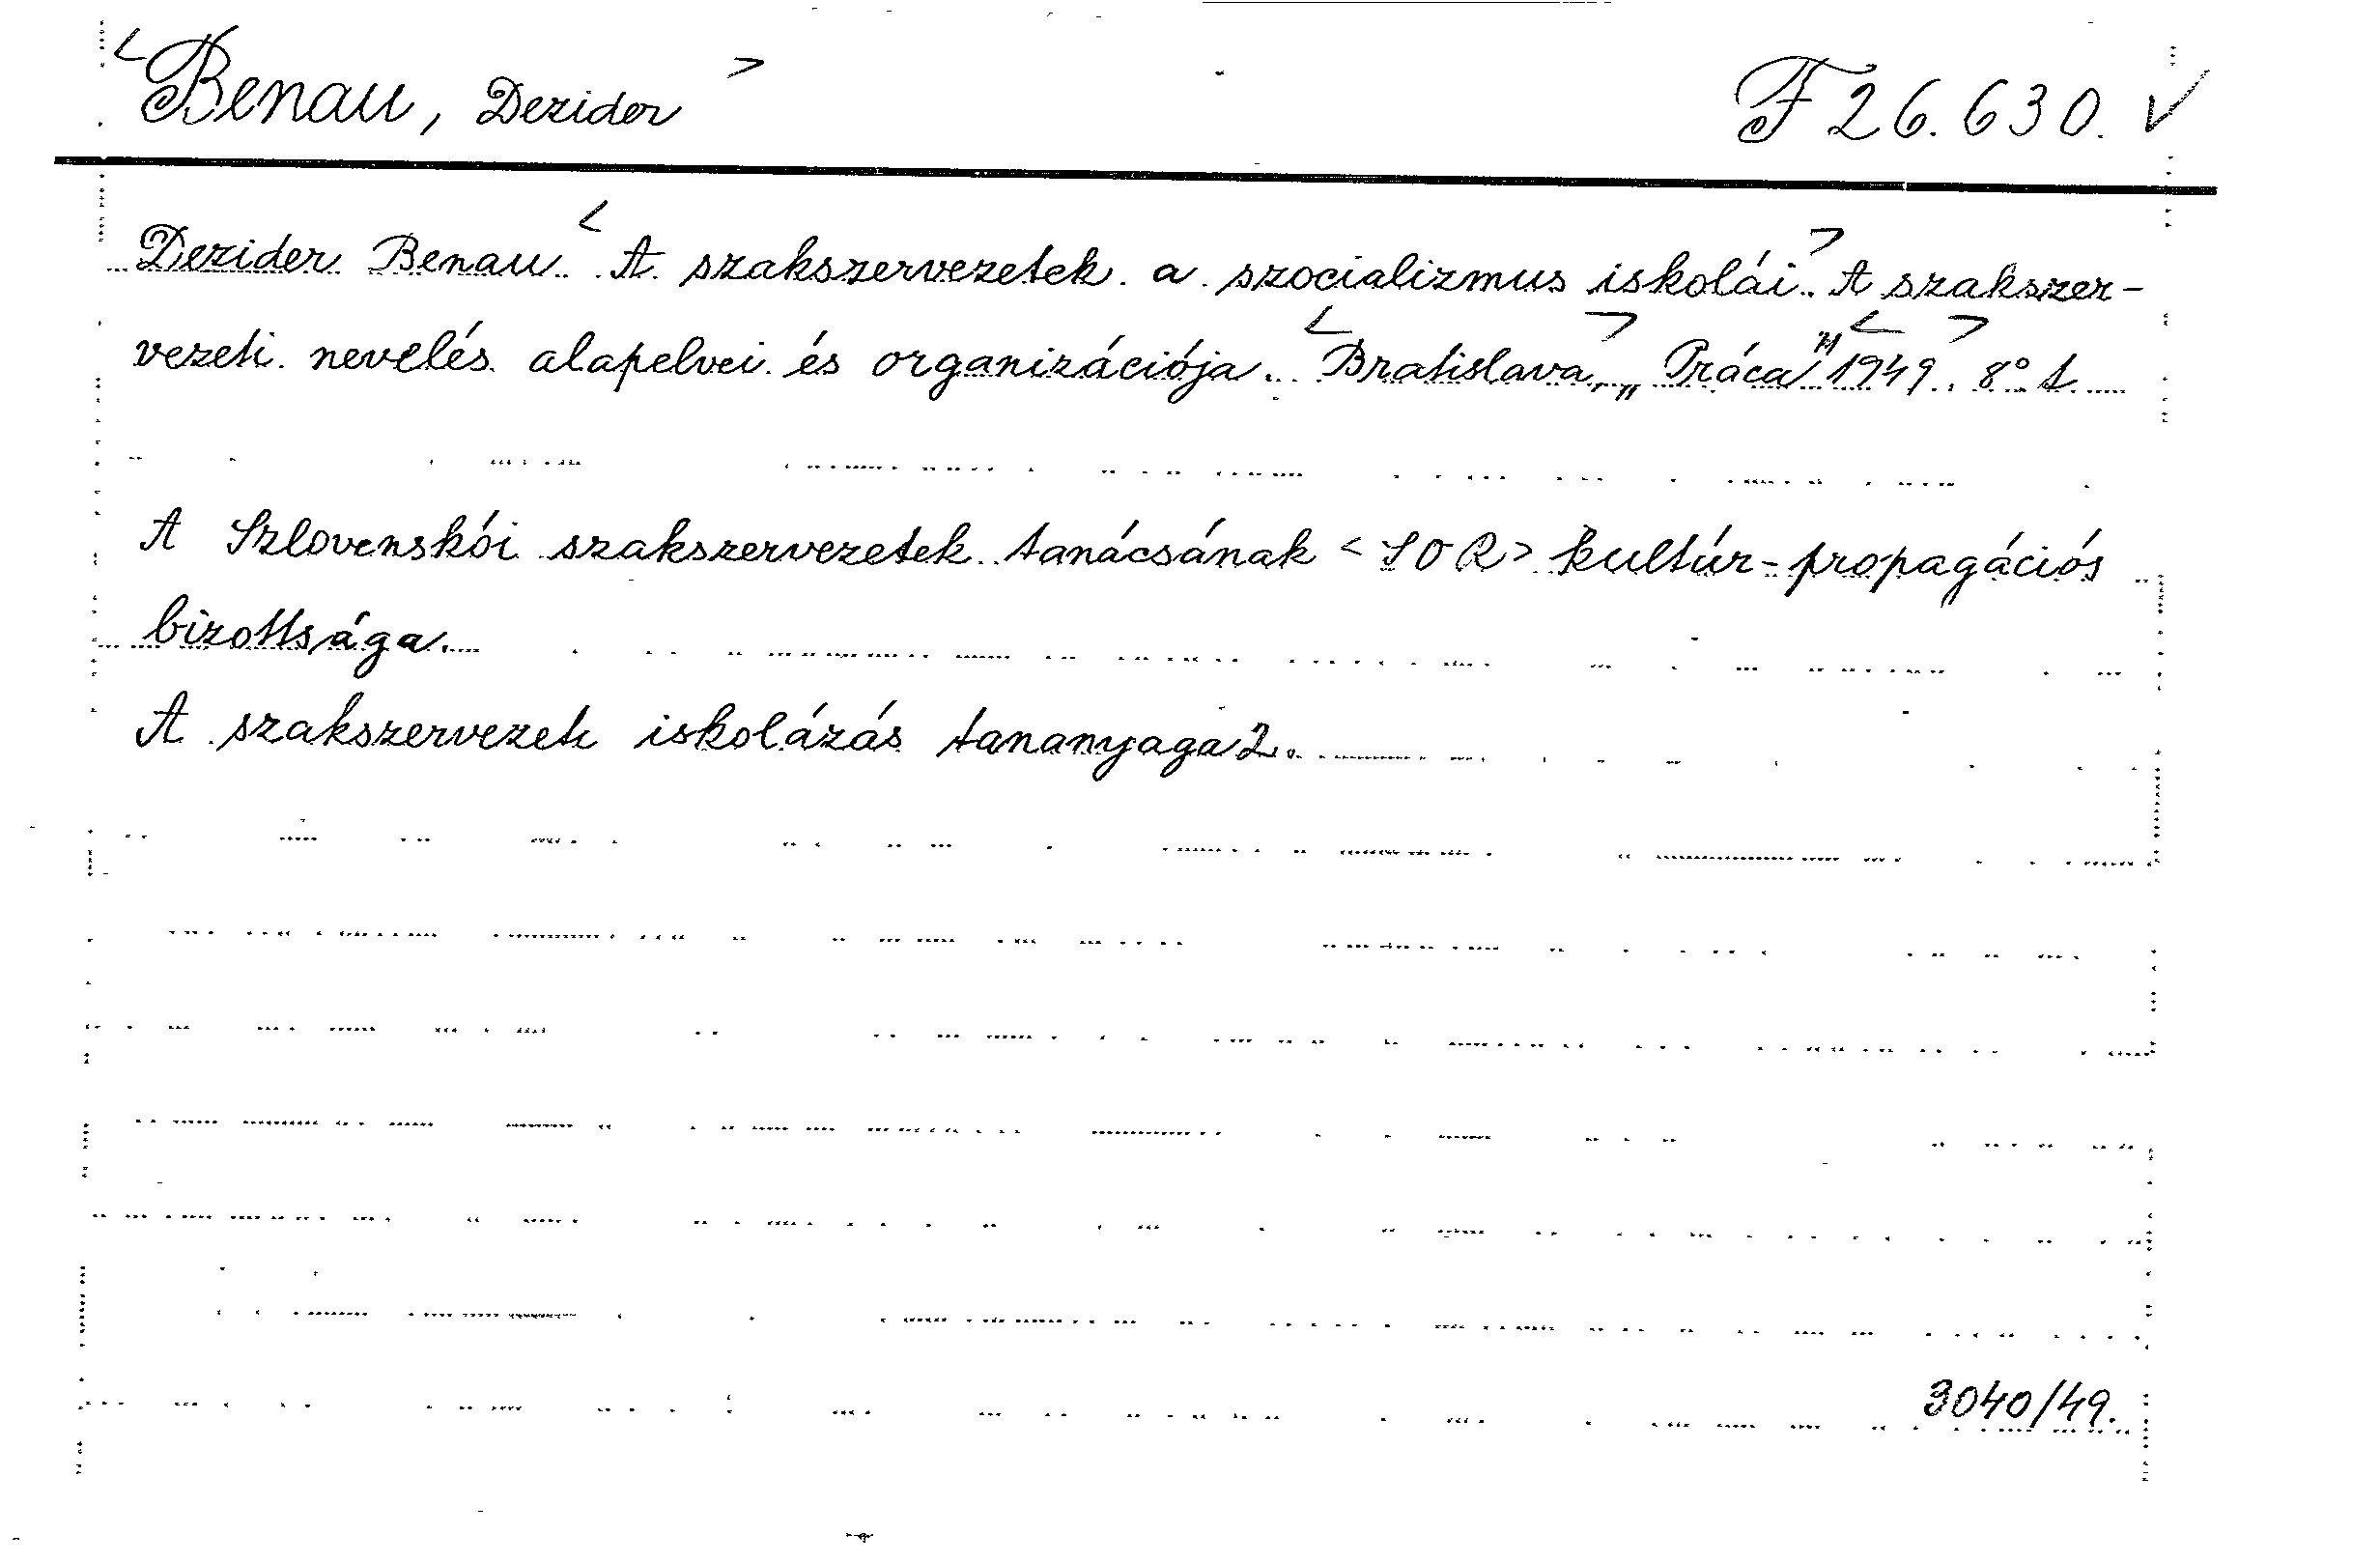 <Benau, Dezider> F 26.630. ✓
Dezider Benau <A szakszervezetek a szocializmus iskolái.> A szakszer-
vezeti nevelés alapelvei és organizációja. <Bratislava,> „Práca" <1949.> 8° 1.
A Szlovenskói szakszervezetek tanácsának <SOR> kultúr-propagációs
bizottsága.
A szakszervezeti iskolázás tananyaga 2.
3040/49.